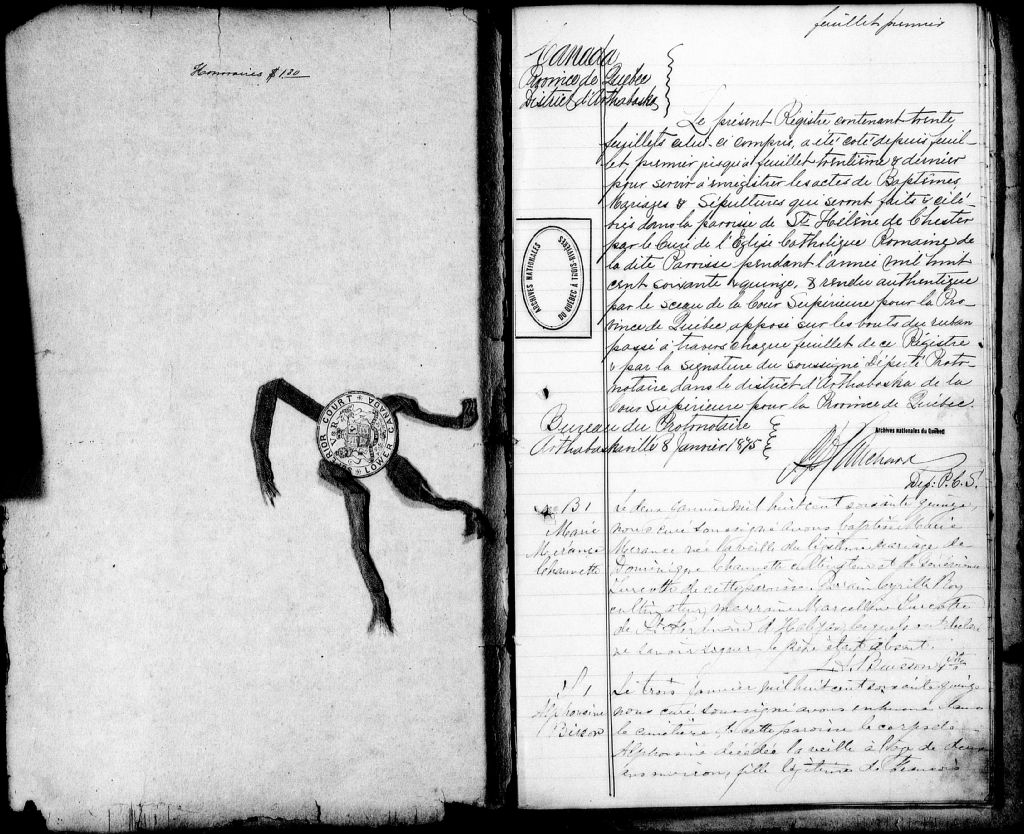 Honoraires $ 1.20
SUPERIOR COURT
LOWER CANADA
V R
feuillet premier
Canada
Province de Québec
District d'Arthabaska
Le présent Registre contenant trente
feuillets celui-ci compris, a été coté depuis feuil-
let premier jusqu'à feuillet trentième & dernier
pour servir à enregistrer les actes de Baptêmes,
Mariages & Sépultures qui seront faits & célé-
brés dans la paroisse de Ste Hélène de Chester
par le Curé de l'Eglise Catholique Romaine de
la dite Paroisse pendant l'année mil huit
cent soixante & quinze, & rendu authentique
par le sceau de la Cour Supérieure pour la Pro-
vince de Québec apposé sur les bouts du ruban
passé à travers chaque feuillet de ce Régistre
& par la signature du soussigné Député Proto-
notaire dans le district d'Arthabaska de la
Cour Supérieure pour la Province de Québec.
ARCHIVES NATIONALES
DU QUÉBEC À TROIS-RIVIÈRES
Bureau du Protonotaire
Arthabaskaville 8 Janvier 1875
Archives nationales du Québec
Dép: P. C. S.
B 1
Marie
Mérance
Chauvette
Le deux Janvier mil huit cent soixante quinze,
nous curé soussigné avons baptisé Marie
Mérance née la veille du légitime mariage de
Dominique Chauvette cultivateur et de
Turcotte de cette paroisse. Parrain Cyrille Roy
cultivateur, marraine Marcelline Turcotte
de St Ferdinand d'Halifax, lesquels ont déclaré
ne savoir signer, le père était absent.
Buisson Ptre
S 1
Alphonsine
Bisson
Le trois Janvier mil huit cent soixante quinze
nous curé soussigné avons enhumé dans
le cimetière de cette paroisse le corps de
Alphonsine décédée la veille à l'âge de
ans environ, fille légitime de François